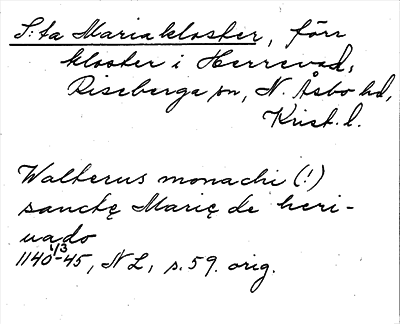 S:ta Mariakloster, förr
kloster i Herrevad,
Riseberga sn, N. Åsbo hd,
Krist. l.
Walterus monachi (!)
sanctę Marię de heri-
uado
1140 1/3-45, NL, s. 59. orig.